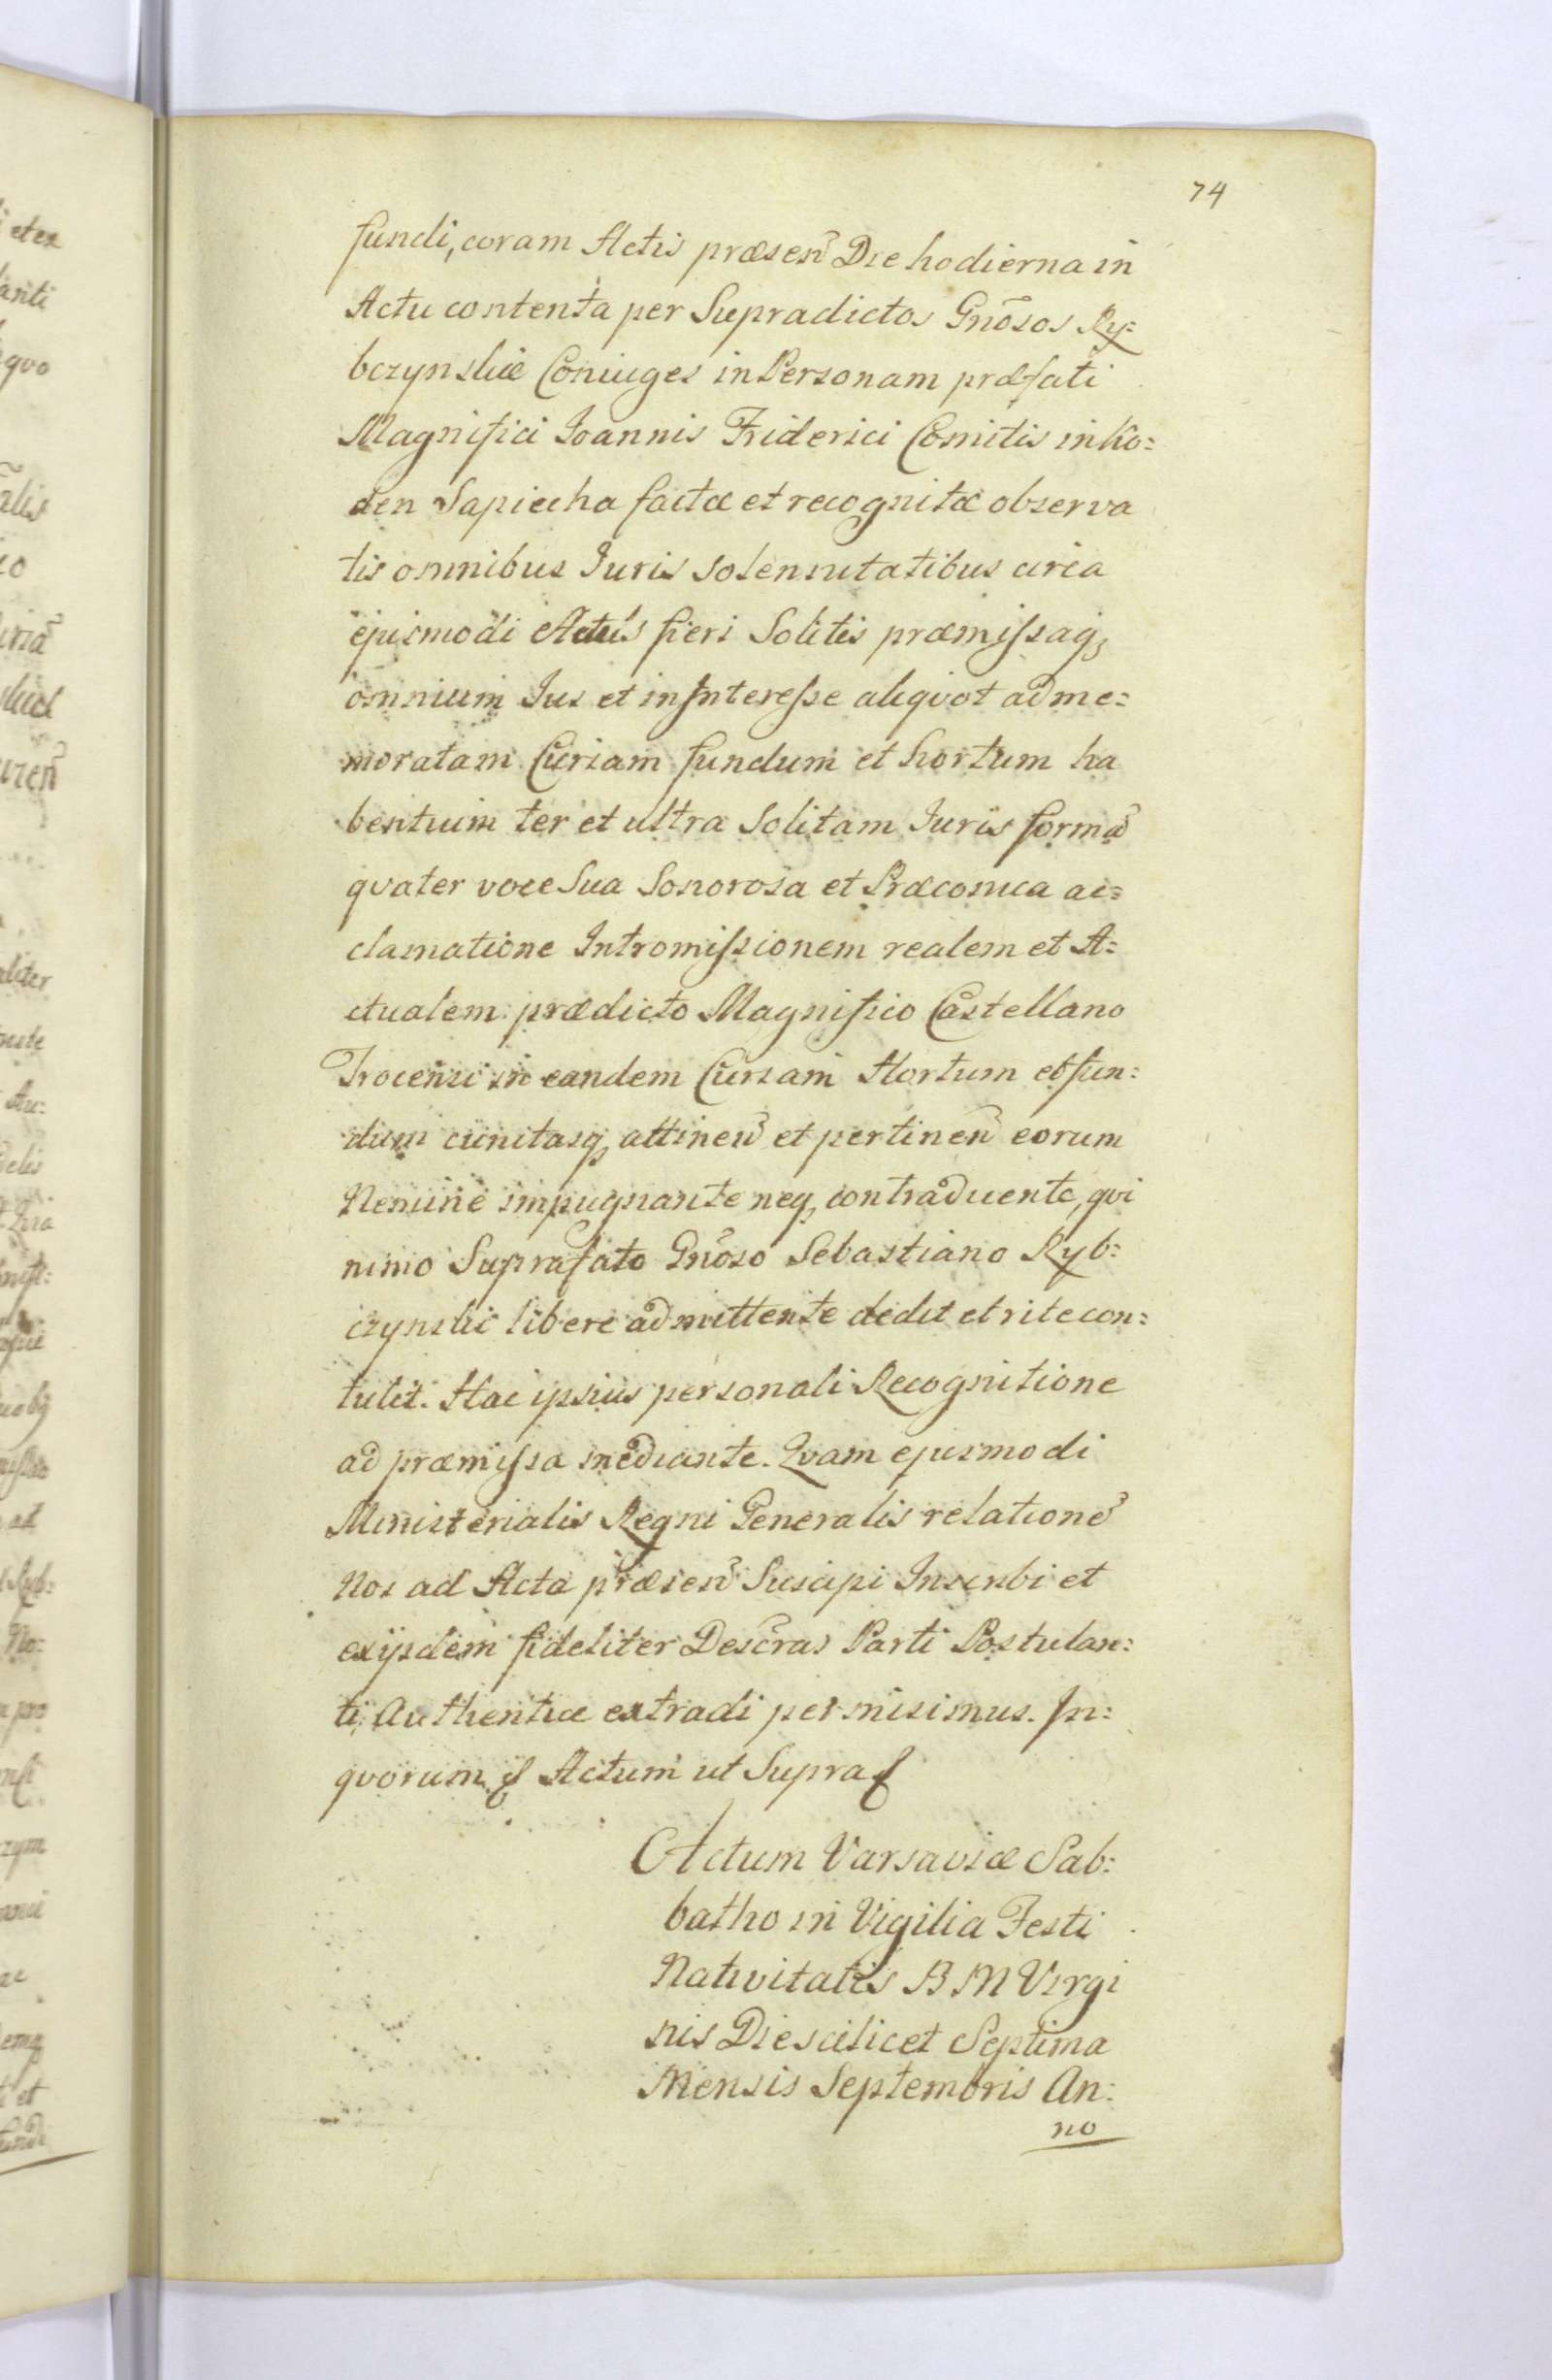 74
fundi, coram Actis præsen̄ Die hodierna in
Actu contenta per Supradictos Gnōsos Ry:
bczynskie Coniuges in Personam præfati
Magnifici Joannis Friderici Comitis in Ko:
den Sapiecha factæ et recognitæ observa
tis omnibus Juris solennitatibus circa
ejusmodi Actus fieri Solitis præmissaq,
omnium Jus et in Interesse aliqvot ad me:
moratam Curiam fundum et hortum ha
bentium ter et ultra Solitam Juris formā
qvater voce Sua Sonorosa et Præconica ac:
clamatione Intromissionem realem et A:
ctualem prædicto Magnifico Castellano
Trocensi in eandem Curiam Hortum et fun:
dum cunctasq, attinen̄ et pertinen̄ eorum
Nemine impugnante neq, contradicente, qvi
nimo Suprafato Gnōso Sebastiano Ryb:
czynski libere admittente dedit et rite con:
tulit. Hac ipsius personali Recognitione
ad præmissa mediante. Qvam ejusmodi
Ministerialis Regni Generalis relationē
Nos ad Acta præsen̄ Suscipi Inscribi et
ex ijsdem fideliter Descr̄as Parti Postulan:
ti, Authenticæ extradi permisimus. In:
qvorum Actum ut Supra
Actum Varsaviæ Sab:
batho in Vigilia Festi
Nativitatis B M Virgi
nis Die scilicet Septima
Mensis Septembris An:
no